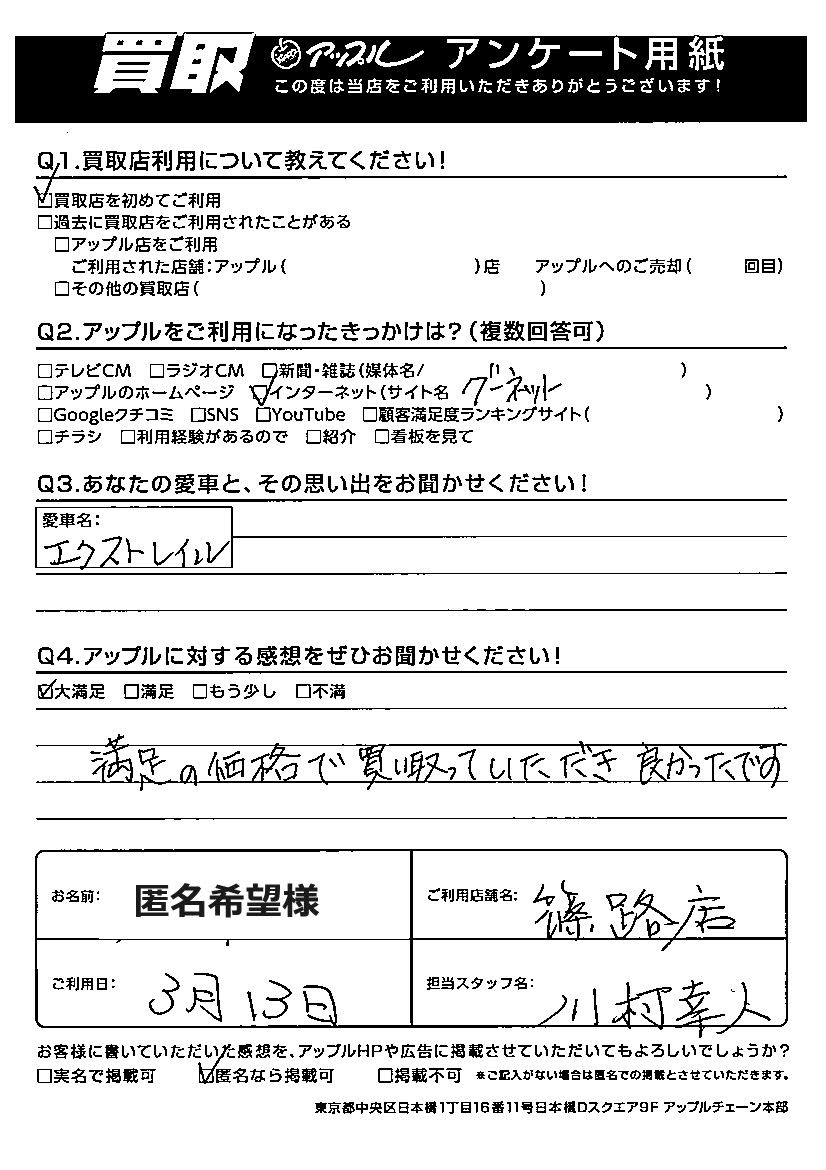 買取 アップル アンケート用紙
この度は当店をご利用いただきありがとうございます!
Q1.買取店利用について教えてください!
☑買取店を初めてご利用
□過去に買取店をご利用されたことがある
□アップル店をご利用
ご利用された店舗:アップル( )店 アップルへのご売却( 回目)
□その他の買取店( )
Q2.アップルをご利用になったきっかけは?(複数回答可)
□テレビCM □ラジオCM □新聞・雑誌(媒体名/ )
□アップルのホームページ ☑インターネット(サイト名 グーネット )
□Googleクチコミ □SNS □YouTube □顧客満足度ランキングサイト( )
□チラシ □利用経験があるので □紹介 □看板を見て
Q3.あなたの愛車と、その思い出をお聞かせください!
愛車名:
エクストレイル
Q4.アップルに対する感想をぜひお聞かせください!
☑大満足 □満足 □もう少し □不満
満足の価格で買い取っていただき良かったです
お名前: 匿名希望様 ご利用店舗名: 篠路店
ご利用日: 3月13日 担当スタッフ名: 川村幸人
お客様に書いていただいた感想を、アップルHPや広告に掲載させていただいてもよろしいでしょうか?
□実名で掲載可 ☑匿名なら掲載可 □掲載不可 *ご記入がない場合は匿名での掲載とさせていただきます。
東京都中央区日本橋1丁目16番11号日本橋Dスクエア9F アップルチェーン本部